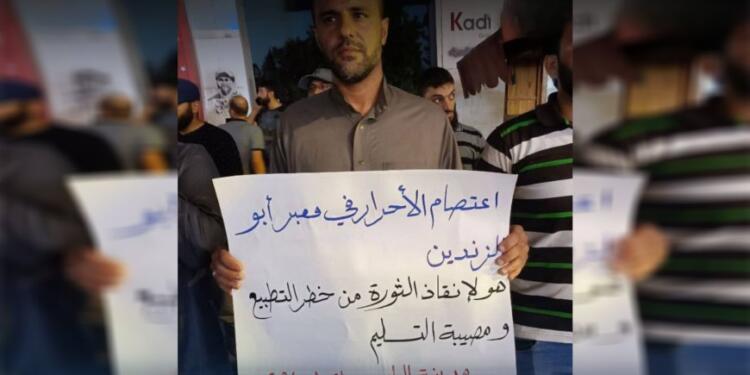 Kadi
اعتصام الأحرار في معبر أبو
الزندين
هو لإنقاذ الثورة من خطر التطبيع
و مصيبة التسليم
مدينة الباب